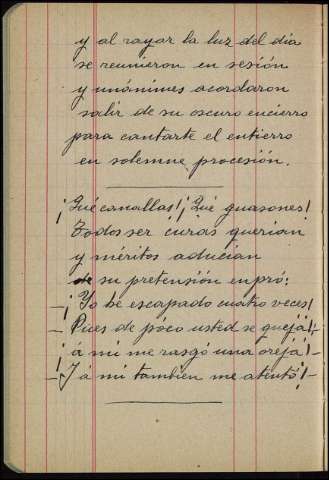 y al rayar la luz del dia
se reunieron en sesión
y unánimes acordaron
salir de su oscuro encierro
para cantarte el entierro
en solemne procesión.
¡Qué canallas! ¡Qué guasones!
Todos ser curas querian
y méritos aducian
de su pretensión en pró:
—¡Yo he escapado cuatro veces!
—Pues de poco usted se queja!—
¡á mi me rasgó una oreja!—
—¡Y á mi tambien me atentó!—